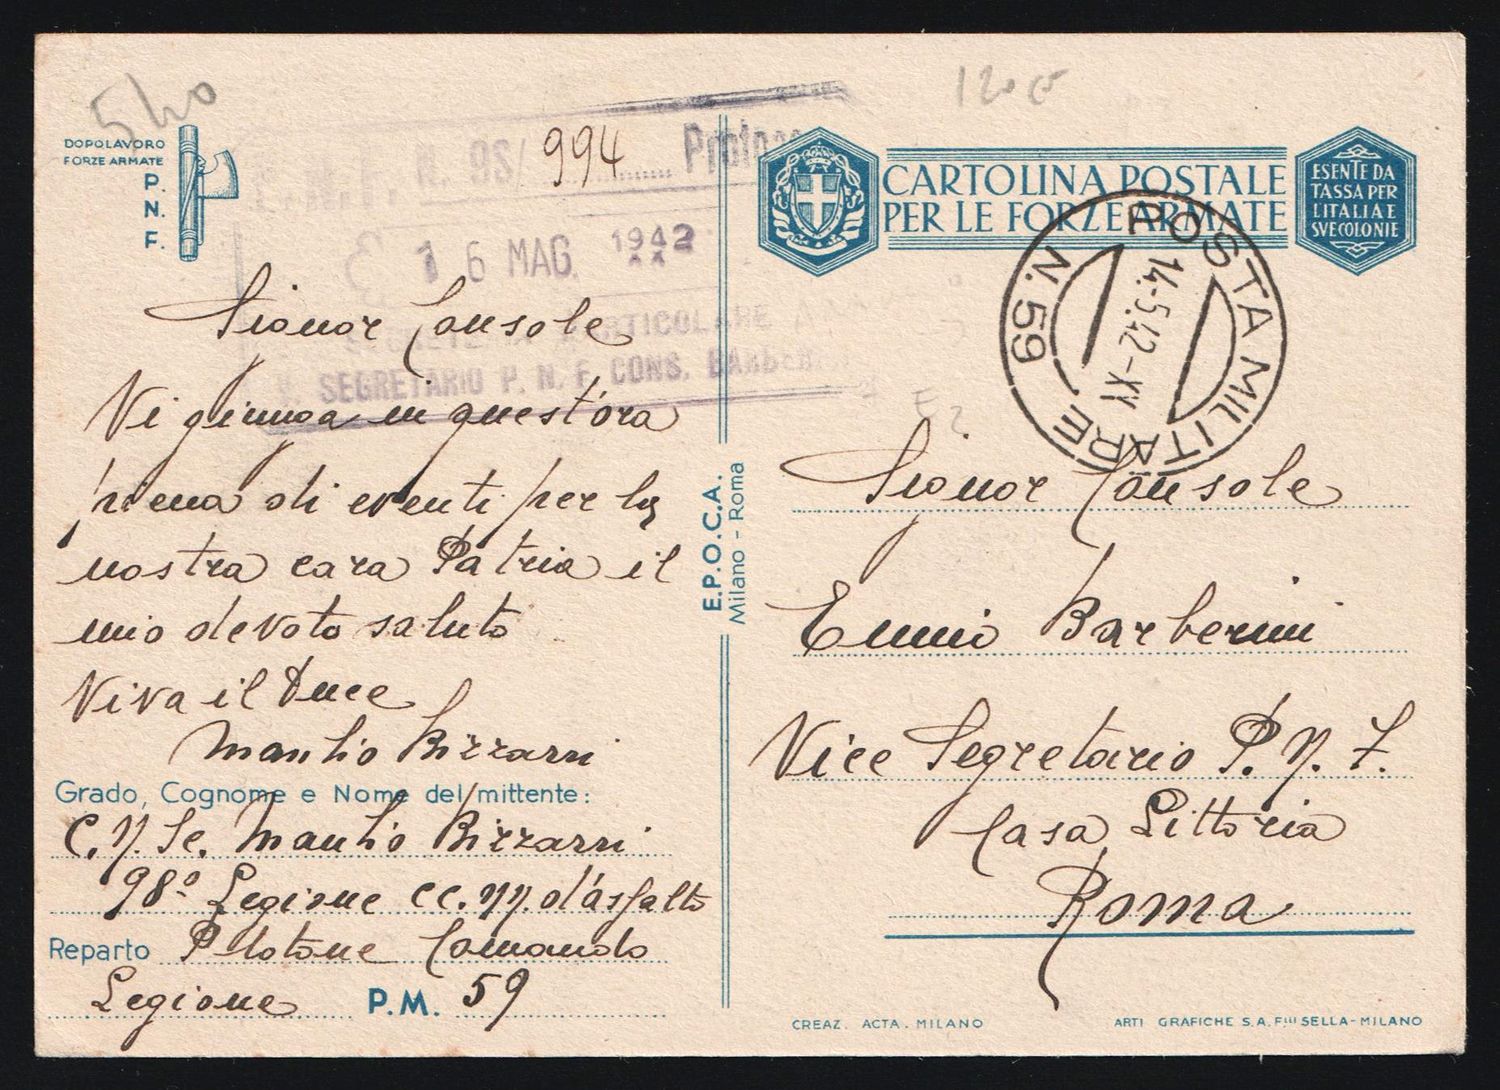 540
120 €
DOPOLAVORO
FORZE ARMATE
P.
N.
F.
N. 98/ 994 Protoc
16 MAG. 1942
SEGRETERIA PARTICOLARE
V. SEGRETARIO P. N. F. CONS. BARBER
Signor Console
Vi giunga in quest'ora
piena di eventi per la
nostra cara Patria il
mio devoto saluto
Viva il Duce
Manlio Bizzarri
Grado, Cognome e Nome del mittente:
C.N. Sc. Manlio Bizzarri
98º Legione CC.NN. d'asfalto
Reparto Plotone Comando
Legione P.M. 59
E.P.O.C.A.
Milano - Roma
CARTOLINA POSTALE
PER LE FORZE ARMATE
ESENTE DA
TASSA PER
L'ITALIA E
SVE COLONIE
POSTA MILITARE
N. 59
14.5.42-XX
E2
Signor Console
Ennio Barberini
Vice Segretario P.N.F.
Casa Littoria
Roma
CREAZ. ACTA. MILANO
ARTI GRAFICHE S.A. Flli SELLA-MILANO